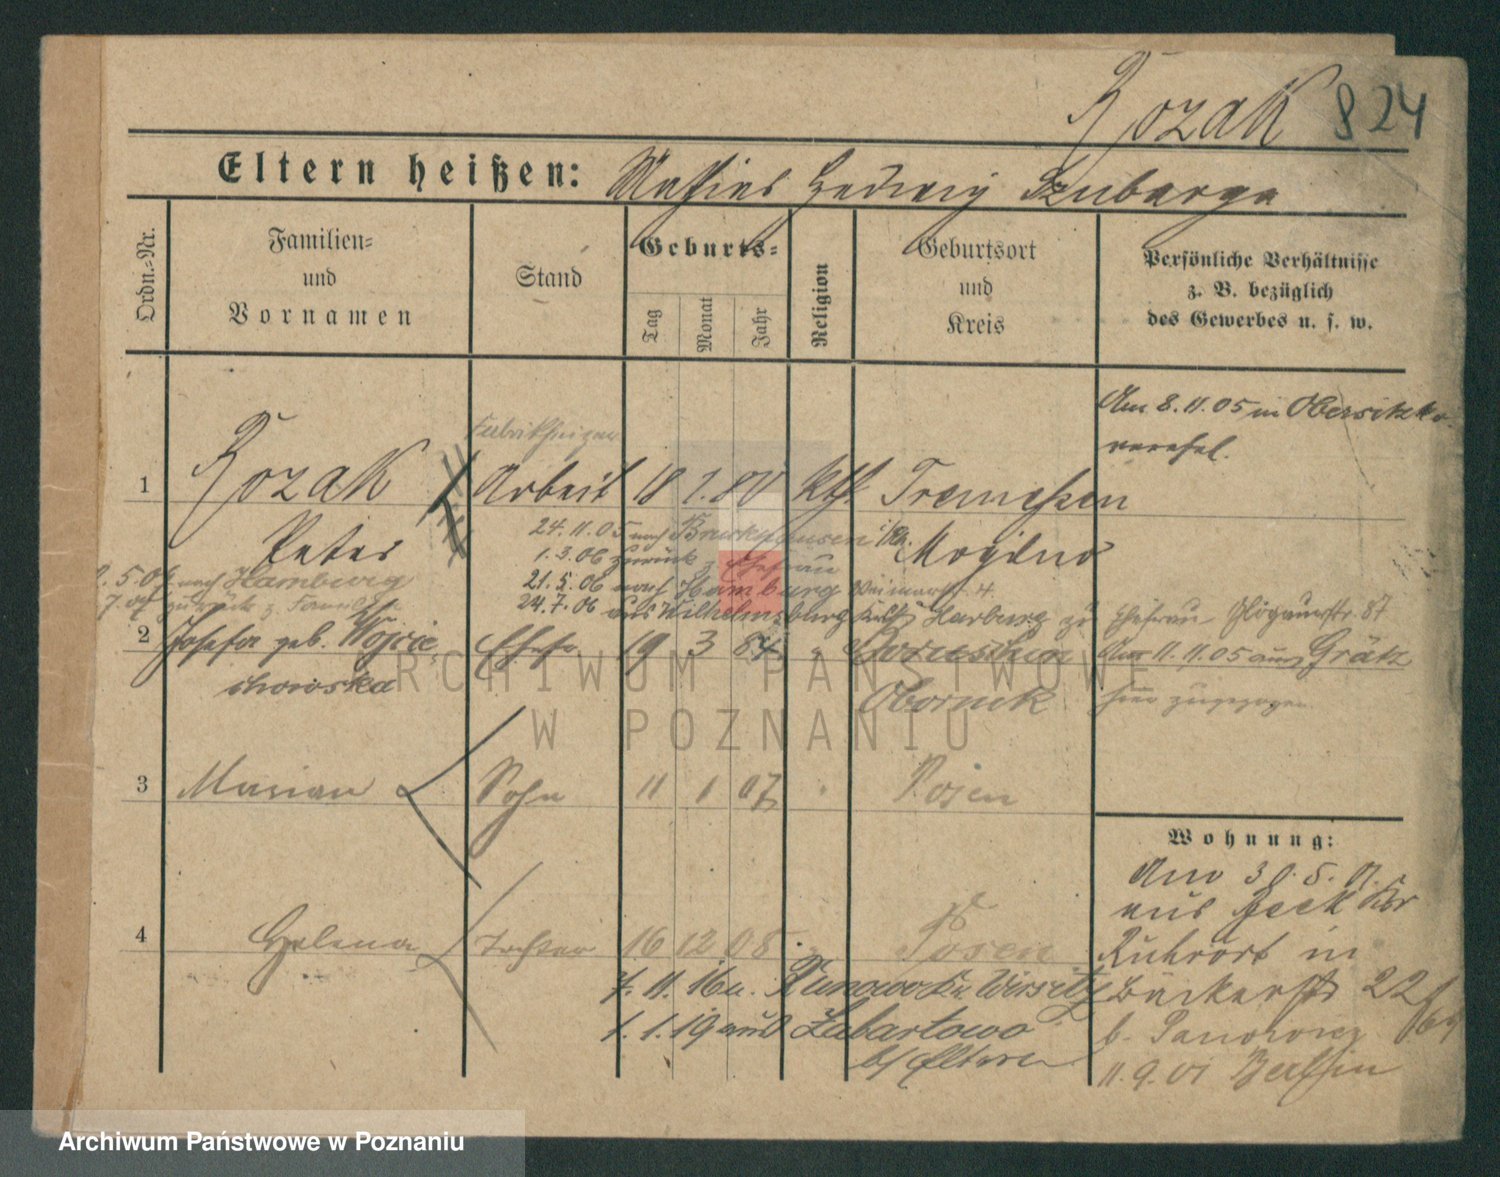 Kozak 824
Eltern heißen: Mathias Hedwig Sznbarga
Ordn.-Nr.
Familien-
und
Vornamen
Stand
Geburts-
Tag
Monat
Jahr
Religion
Geburtsort
und
Kreis
Persönliche Verhältnisse
z. B. bezüglich
des Gewerbes u. s. w.
Am 8.11.05 in Obersitzko
verehel.
1 Kozak Arbeit 18 1. 80 kth Tremessen
Peter Mogilno
24.11.05 nach Bruckhausen
1.3.06 zurück z Ehefrau
21.5.06 nach Hamburg
24.7.06 aus Wilhelmsburg Harburg zu Ehefrau Glogauerstr. 87
nach Hamburg
zurück z. Familie
2 Josefa geb. Wojcie- Ehefr 19 3 84
chowska Obornik
Am 11.11.05 aus Grätz
hier zugezogen
3 Marian Sohn 11 1 07 Posen
4 Helena Tochter 16 12 08 Posen
7.11.16 n. Runowo Kr. Wirsitz
1.1.19 aus Zabartowo
b/ Eltern
Wohnung:
Am 30.5.01.
aus Beek Kr
Ruhrort in
Bäckerstr 22
b.
11.9.01 Berlin
ARCHIWUM PAŃSTWOWE
W POZNANIU
Archiwum Państwowe w Poznaniu